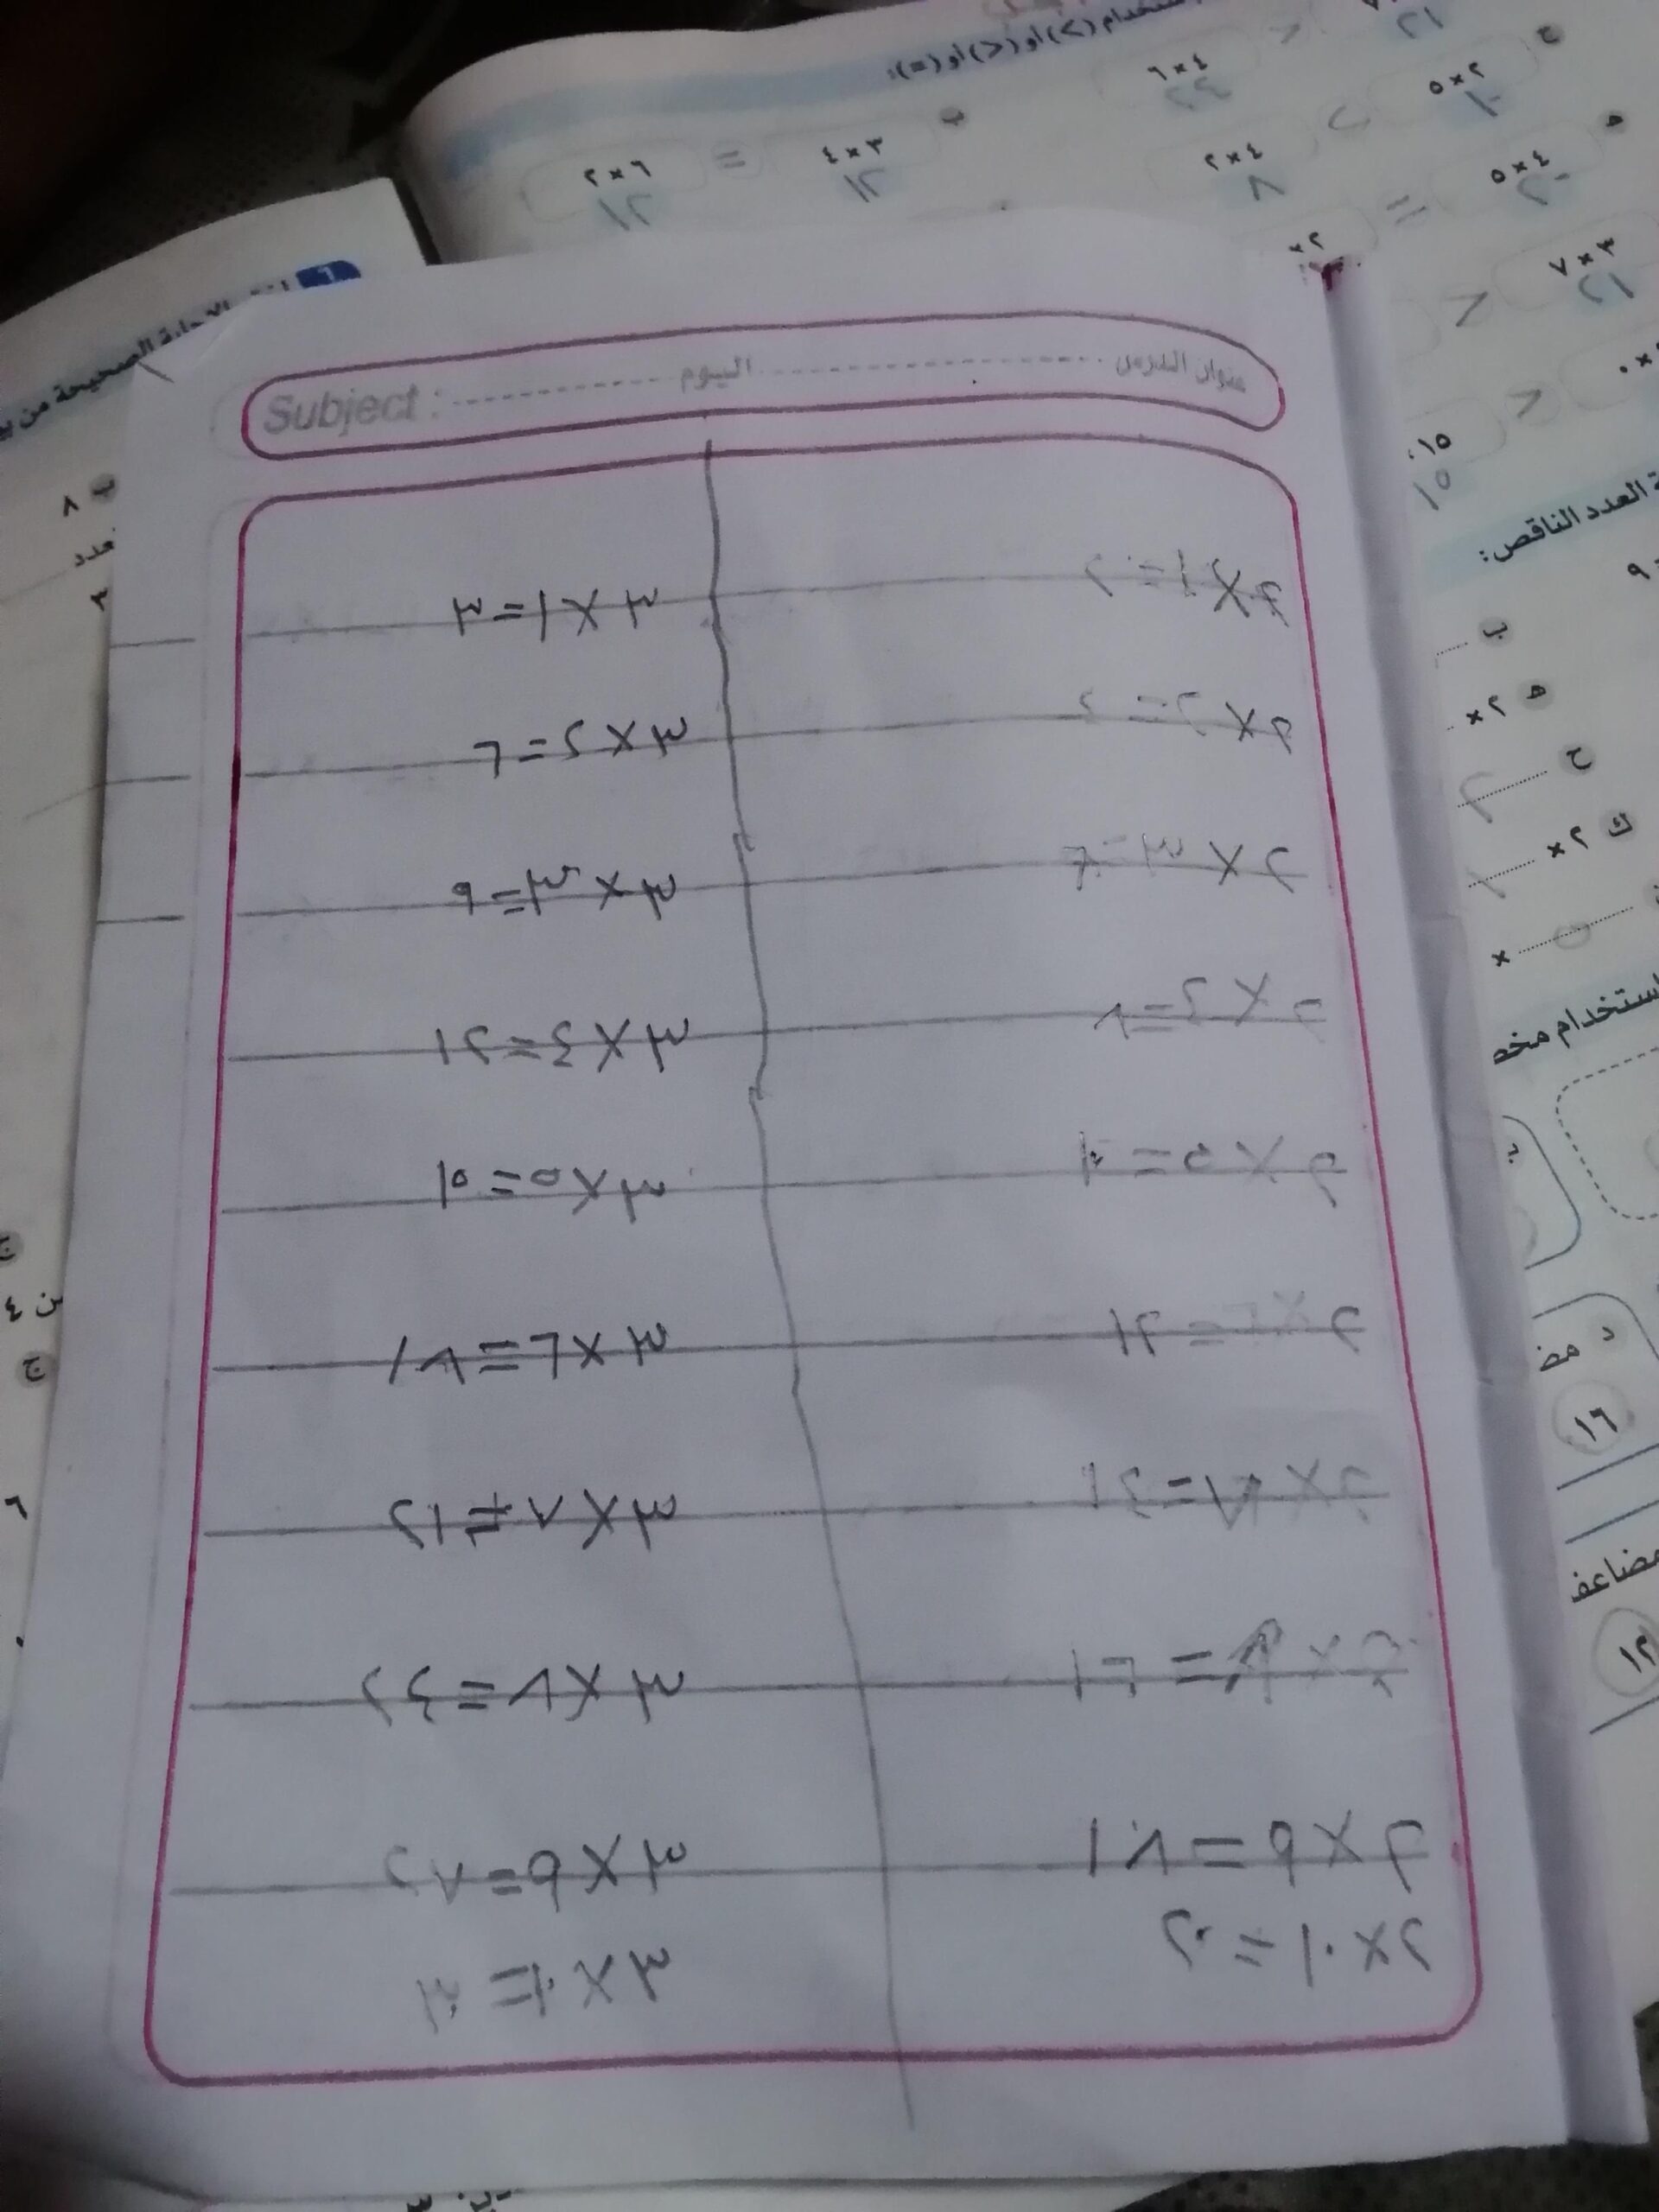 استخدام (>) أو (<) أو (=):
٤×٦
٢×٥
ب ٣×٤ = ٦×٢
١٢ ١٢
٤×٢
٨
ه ٤×٥
٣×٧
٢١
١٥
١٥
العدد الناقص:
٩
ب
ه ٢×
ح
ك ٢×
استخدام مخط
د مض
١٦
مضاعف
١٢
٦
الإجابة الصحيحة من
ب ٨
عدد
٣
ن ٤
ج
٦
عنوان الدرس اليوم Subject :
٢×١=٢
٢×٢=٤
٢×٣=٦
٢×٤=٨
٢×٥=١٠
٢×٦=١٢
٢×٧=١٤
٢×٨=١٦
٢×٩=١٨
٢×١٠=٢٠
٣×١=٣
٣×٢=٦
٣×٣=٩
٣×٤=١٢
٣×٥=١٥
٣×٦=١٨
٣×٧=٢١
٣×٨=٢٤
٣×٩=٢٧
٣×١٠=٣٠